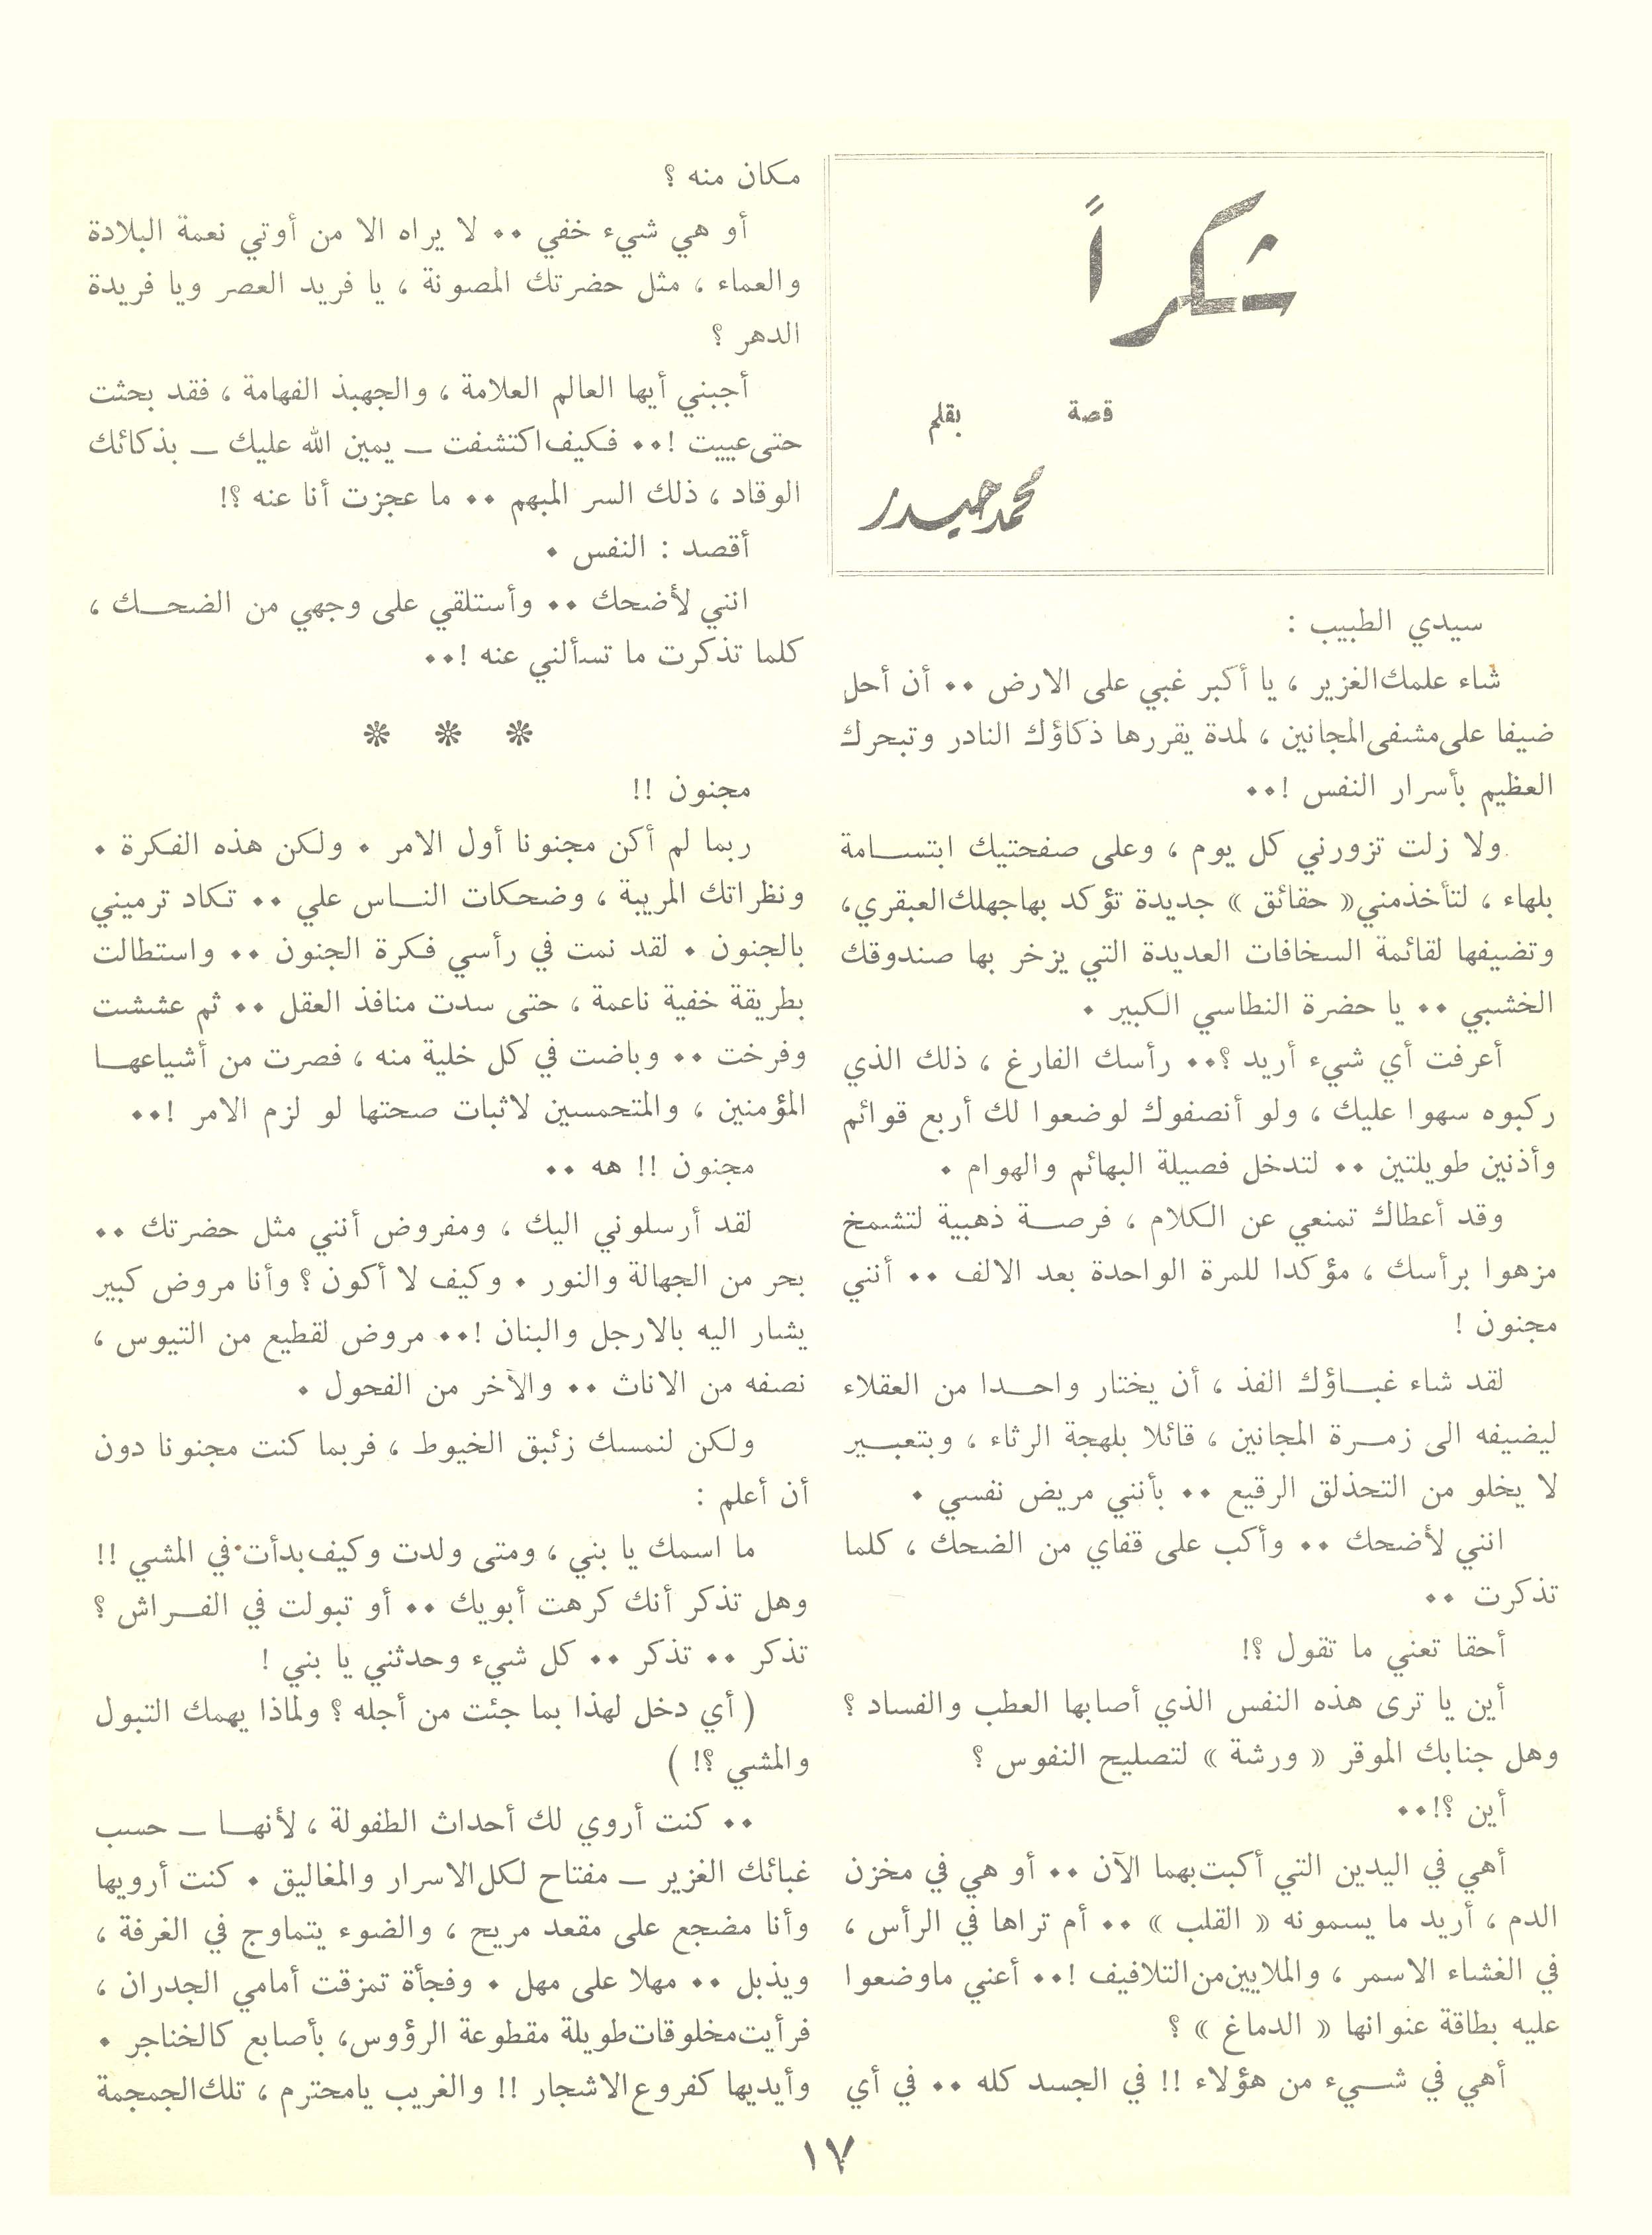 شكراً
قصة بقلم
محمد حيدر
سيدي الطبيب :
شاء علمك الغزير ، يا أكبر غبي على الارض ٠٠ أن أحل
ضيفا على مشفى المجانين ، لمدة يقررها ذكاؤك النادر وتبحرك
العظيم بأسرار النفس !٠٠
ولا زلت تزورني كل يوم ، وعلى صفحتيك ابتســامة
بلهاء ، لتأخذ مني « حقائق » جديدة تؤكد بها جهلك العبقري،
وتضيفها لقائمة السخافات العديدة التي يزخر بها صندوقك
الخشبي ٠٠ يا حضرة النطاسي الكبير ٠
أعرفت أي شيء أريد ؟٠٠ رأسك الفارغ ، ذلك الذي
ركبوه سهوا عليك ، ولو أنصفوك لوضعوا لك أربع قوائم
وأذنين طويلتين ٠٠ لتدخل فصيلة البهائم والهوام ٠
وقد أعطاك تمنعي عن الكلام ، فرصــة ذهبية لتشمخ
مزهوا برأسك ، مؤكدا للمرة الواحدة بعد الالف ٠٠ أنني
مجنون !
لقد شاء غبــاؤك الفذ ، أن يختار واحــدا من العقلاء
ليضيفه الى زمــرة المجانين ، قائلا بلهجة الرثاء ، وبتعبــير
لا يخلو من التحذلق الرقيع ٠٠ بأنني مريض نفسي ٠
انني لأضحك ٠٠ وأكب على قفاي من الضحك ، كلما
تذكرت ٠٠
أحقا تعني ما تقول ؟!
أين يا ترى هذه النفس الذي أصابها العطب والفساد ؟
وهل جنابك الموقر « ورشة » لتصليح النفوس ؟
أين ؟!٠٠
أهي في اليدين التي أكبت بهما الآن ٠٠ أو هي في مخزن
الدم ، أريد ما يسمونه « القلب » ٠٠ أم تراها في الرأس ،
في الغشاء الاسمر ، والملايين من التلافيف !٠٠ أعني ما وضعوا
عليه بطاقة عنوانها « الدماغ » ؟
أهي في شــيء من هؤلاء !! في الجسد كله ٠٠ في أي
مكان منه ؟
أو هي شيء خفي ٠٠ لا يراه الا من أوتي نعمة البلادة
والعماء ، مثل حضرتك المصونة ، يا فريد العصر ويا فريدة
الدهر ؟
أجبني أيها العالم العلامة ، والجهبذ الفهامة ، فقد بحثت
حتى عييت !٠٠ فكيف اكتشفت ــ يمين الله عليك ــ بذكائك
الوقاد ، ذلك السر المبهم ٠٠ ما عجزت أنا عنه ؟!
أقصد : النفس ٠
انني لأضحك ٠٠ وأستلقي على وجهي من الضحــك ،
كلما تذكرت ما تسألني عنه !٠٠
* * *
مجنون !!
ربما لم أكن مجنونا أول الامر ٠ ولكن هذه الفكرة ٠
ونظراتك المريبة ، وضحكات النــاس علي ٠٠ تكاد ترميني
بالجنون ٠ لقد نمت في رأسي فكرة الجنون ٠٠ واستطالت
بطريقة خفية ناعمة ، حتى سدت منافذ العقل ٠٠ ثم عششت
وفرخت ٠٠ وباضت في كل خلية منه ، فصرت من أشياعهــا
المؤمنين ، والمتحمسين لاثبات صحتها لو لزم الامر !٠٠
مجنون !! هه ٠٠
لقد أرسلوني اليك ، ومفروض أنني مثل حضرتك ٠٠
بحر من الجهالة والنور ٠ وكيف لا أكون ؟ وأنا مروض كبير
يشار اليه بالارجل والبنان !٠٠ مروض لقطيع من التيوس ،
نصفه من الاناث ٠٠ والآخر من الفحول ٠
ولكن لنمسك زئبق الخيوط ، فربما كنت مجنونا دون
أن أعلم :
ما اسمك يا بني ، ومتى ولدت وكيف بدأت في المشي !!
وهل تذكر أنك كرهت أبويك ٠٠ أو تبولت في الفــراش ؟
تذكر ٠٠ تذكر ٠٠ كل شيء وحدثني يا بني !
( أي دخل لهذا بما جئت من أجله ؟ ولماذا يهمك التبول
والمشي ؟! )
٠٠ كنت أروي لك أحداث الطفولة ، لأنهــا ــ حسب
غبائك الغزير ــ مفتاح لكل الاسرار والمغاليق ٠ كنت أرويها
وأنا مضجع على مقعد مريح ، والضوء يتماوج في الغرفة ،
ويذبل ٠٠ مهلا على مهل ٠ وفجأة تمزقت أمامي الجدران ،
فرأيت مخلوقات طويلة مقطوعة الرؤوس، بأصابع كالخناجر ٠
وأيديها كفروع الاشجار !! والغريب يا محترم ، تلك الجمجمة
١٧